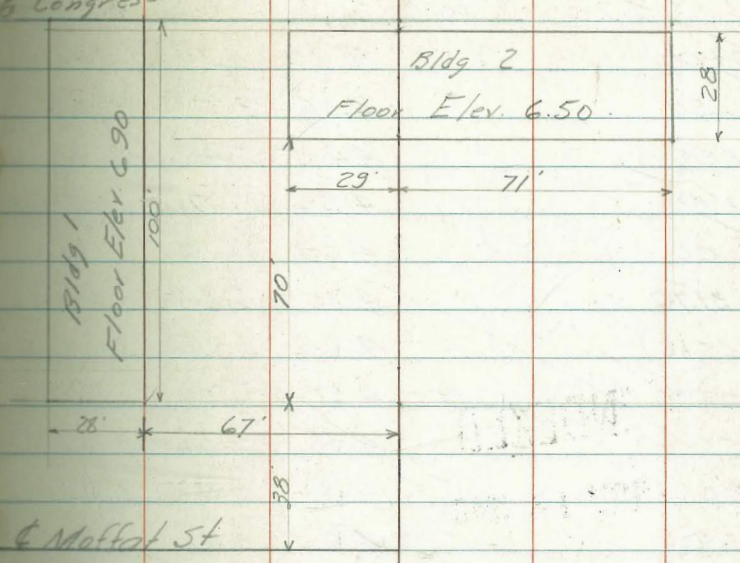 Congress
Bldg 2
Floor Elev. 6.50
28'
29'
71'
Bldg 1
Floor Elev 6.90
100'
70'
28'
67'
38'
℄ Moffat St